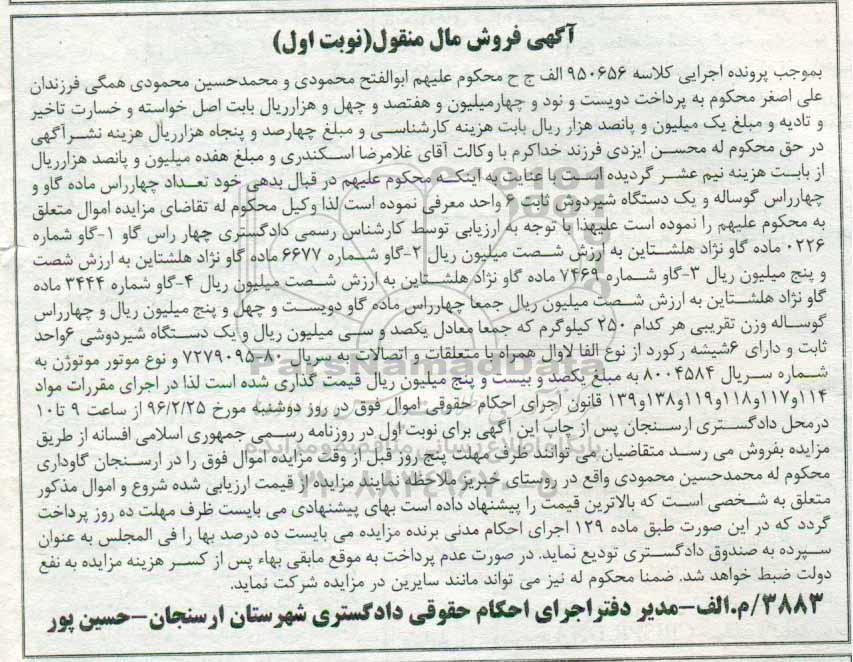 آگهی فروش مال منقول(نوبت اول)
بموجب پرونده اجرایی کلاسه ۹۵۰۶۵۶ الف ج ح محکوم علیهم ابوالفتح محمودی و محمدحسین محمودی همگی فرزندان
علی اصغر محکوم به پرداخت دویست و نود و چهارمیلیون و هفتصد و چهل و هزارریال بابت اصل خواسته و خسارت تاخیر
و تادیه و مبلغ یک میلیون و پانصد هزار ریال بابت هزینه کارشناسی و مبلغ چهارصد و پنجاه هزارریال هزینه نشرآگهی
در حق محکوم له محسن ایزدی فرزند خداکرم با وکالت آقای غلامرضا اسکندری و مبلغ هفده میلیون و پانصد هزارریال
از بابت هزینه نیم عشر گردیده است با عنایت به اینکه محکوم علیهم در قبال بدهی خود تعداد چهارراس ماده گاو و
چهارراس گوساله و یک دستگاه شیردوش ثابت ۶ واحد معرفی نموده است لذا وکیل محکوم له تقاضای مزایده اموال متعلق
به محکوم علیهم را نموده است علیهذا با توجه به ارزیابی توسط کارشناس رسمی دادگستری چهار راس گاو ۱-گاو شماره
۰۲۲۶ ماده گاو نژاد هلشتاین به ارزش شصت میلیون ریال ۲-گاو شماره ۶۶۷۷ ماده گاو نژاد هلشتاین به ارزش شصت
و پنج میلیون ریال ۳-گاو شماره ۷۴۶۹ ماده گاو نژاد هلشتاین به ارزش شصت میلیون ریال ۴-گاو شماره ۳۴۴۴ ماده
گاو نژاد هلشتاین به ارزش شصت میلیون ریال جمعا چهارراس ماده گاو دویست و چهل و پنج میلیون ریال و چهارراس
گوساله وزن تقریبی هر کدام ۲۵۰ کیلوگرم که جمعا معادل یکصد و سی میلیون ریال و یک دستگاه شیردوشی ۶واحد
ثابت و دارای ۶شیشه رکورد از نوع الفا لاوال همراه با متعلقات و اتصالات به سریال ۸۰-۷۲۷۹۰۹۵ و نوع موتور موتوژن به
شماره سریال ۸۰۰۴۵۸۴ به مبلغ یکصد و بیست و پنج میلیون ریال قیمت گذاری شده است لذا در اجرای مقررات مواد
۱۱۴و۱۱۷و۱۱۸و۱۱۹و۱۳۸و۱۳۹ قانون اجرای احکام حقوقی اموال فوق در روز دوشنبه مورخ ۹۶/۲/۲۵ از ساعت ۹ تا۱۰
درمحل دادگستری ارسنجان پس از چاپ این آگهی برای نوبت اول در روزنامه رسمی جمهوری اسلامی افسانه از طریق
مزایده بفروش می رسد متقاضیان می توانند ظرف مهلت پنج روز قبل از وقت مزایده اموال فوق را در ارسنجان گاوداری
محکوم له محمدحسین محمودی واقع در روستای خبریز ملاحظه نمایند مزایده از قیمت ارزیابی شده شروع و اموال مذکور
متعلق به شخصی است که بالاترین قیمت را پیشنهاد داده است بهای پیشنهادی می بایست ظرف مهلت ده روز پرداخت
گردد که در این صورت طبق ماده ۱۲۹ اجرای احکام مدنی برنده مزایده می بایست ده درصد بها را فی المجلس به عنوان
سپرده به صندوق دادگستری تودیع نماید. در صورت عدم پرداخت به موقع مابقی بهاء پس از کسر هزینه مزایده به نفع
دولت ضبط خواهد شد. ضمنا محکوم له نیز می تواند مانند سایرین در مزایده شرکت نماید.
۳۸۸۳/م.الف-مدیر دفتراجرای احکام حقوقی دادگستری شهرستان ارسنجان-حسین پور
ParsNamadData